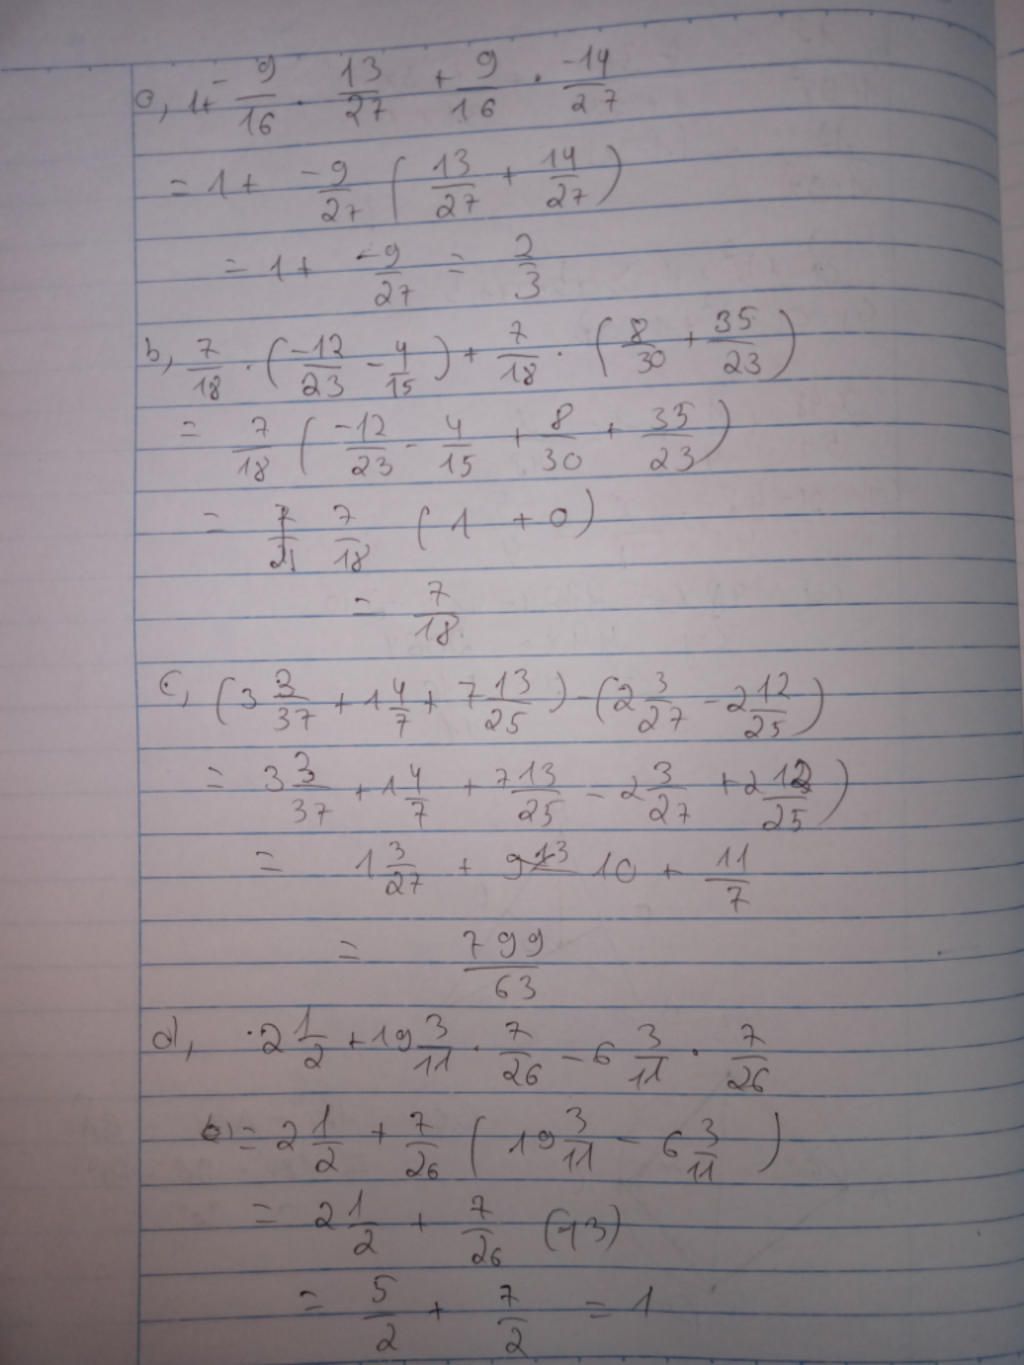 a, 1+ -9/16 . 13/27 + 9/16 . -14/27
= 1 + -9/27 ( 13/27 + 14/27 )
= 1 + -9/27 = 2/3
b, 7/18 . ( -12/23 - 4/15 ) + 7/18 . ( 8/30 + 35/23 )
= 7/18 ( -12/23 - 4/15 + 8/30 + 35/23 )
= 7/18 ( 1 + 0 )
= 7/18
c, ( 3 3/37 + 1 4/7 + 7 13/25 ) - ( 2 3/27 - 2 12/25 )
= 3 3/37 + 1 4/7 + 7 13/25 - 2 3/27 + 2 12/25 )
= 1 3/27 + 10 + 11/7
= 799/63
d, . 2 1/2 + 19 3/11 . 7/26 - 6 3/11 . 7/26
= 2 1/2 + 7/26 ( 19 3/11 - 6 3/11 )
= 2 1/2 + 7/26 (13)
= 5/2 + 7/2 = 1